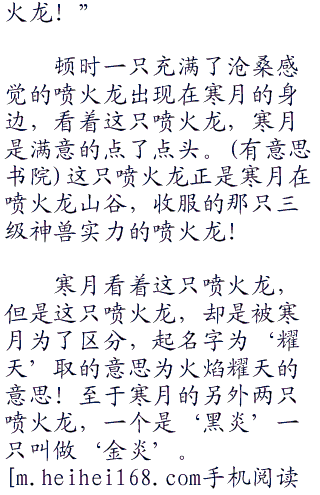 火龙！”
顿时一只充满了沧桑感
觉的喷火龙出现在寒月的身
边，看着这只喷火龙，寒月
是满意的点了点头。(有意思
书院)这只喷火龙正是寒月在
喷火龙山谷，收服的那只三
级神兽实力的喷火龙！
寒月看着这只喷火龙，
但是这只喷火龙，却是被寒
月为了区分，起名字为‘耀
天’取的意思为火焰耀天的
意思！至于寒月的另外两只
喷火龙，一个是‘黑炎’一
只叫做‘金炎’。
[m.heihei168.com手机阅读